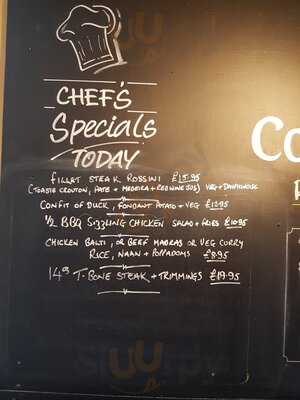 CHEF'S
Specials
TODAY
FILLAT STEAK ROSSINI £15.95
(TOASTE CROUTON, PATE + MADEIRA + REDWINE JUS) VEG + DAUPHINOISE
CONFIT OF DUCK, FONDANT POTATO + VEG £12.95
1/2 BBQ SIZZLING CHICKEN SALAD + FRIES £10.95
CHICKEN BALTI, OR BEEF MADRAS OR VEG CURRY
RICE, NAAN + POPPADOMS
£8.95
14oz T-BONE STEAK + TRIMMINGS £19.95
Co